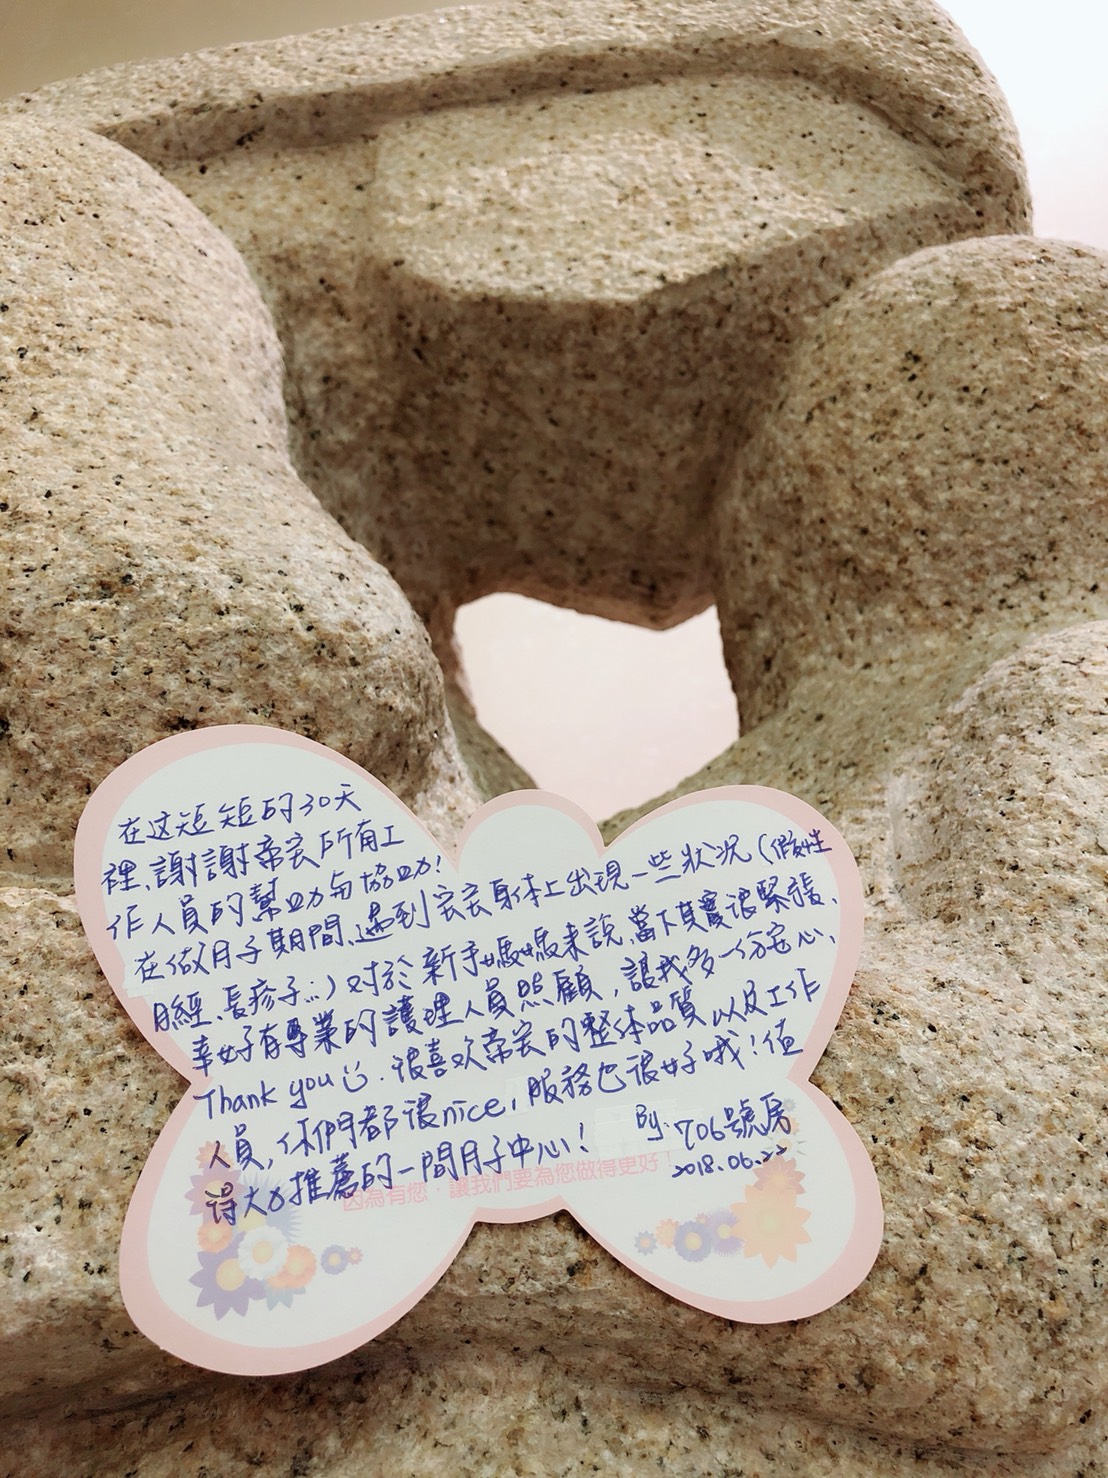 在这短短的30天
裡、謝謝帝宏所有工
作人員的幫助与協助!
在做月子期間、遇到宏宏身体上出現一些狀況(假性
月經、長疹子…)对於新手媽媽來說、當下其實很緊張、
幸好有專業的護理人員照顧,讓我多一份安心、
Thank you. 很喜欢帝宏的整体品質以及工作
人員,你們都很nice,服務也很好哦!值
得大力推薦的一間月子中心!
By. 706號房
2018.06.22
因為有您,讓我們要為您做得更好!